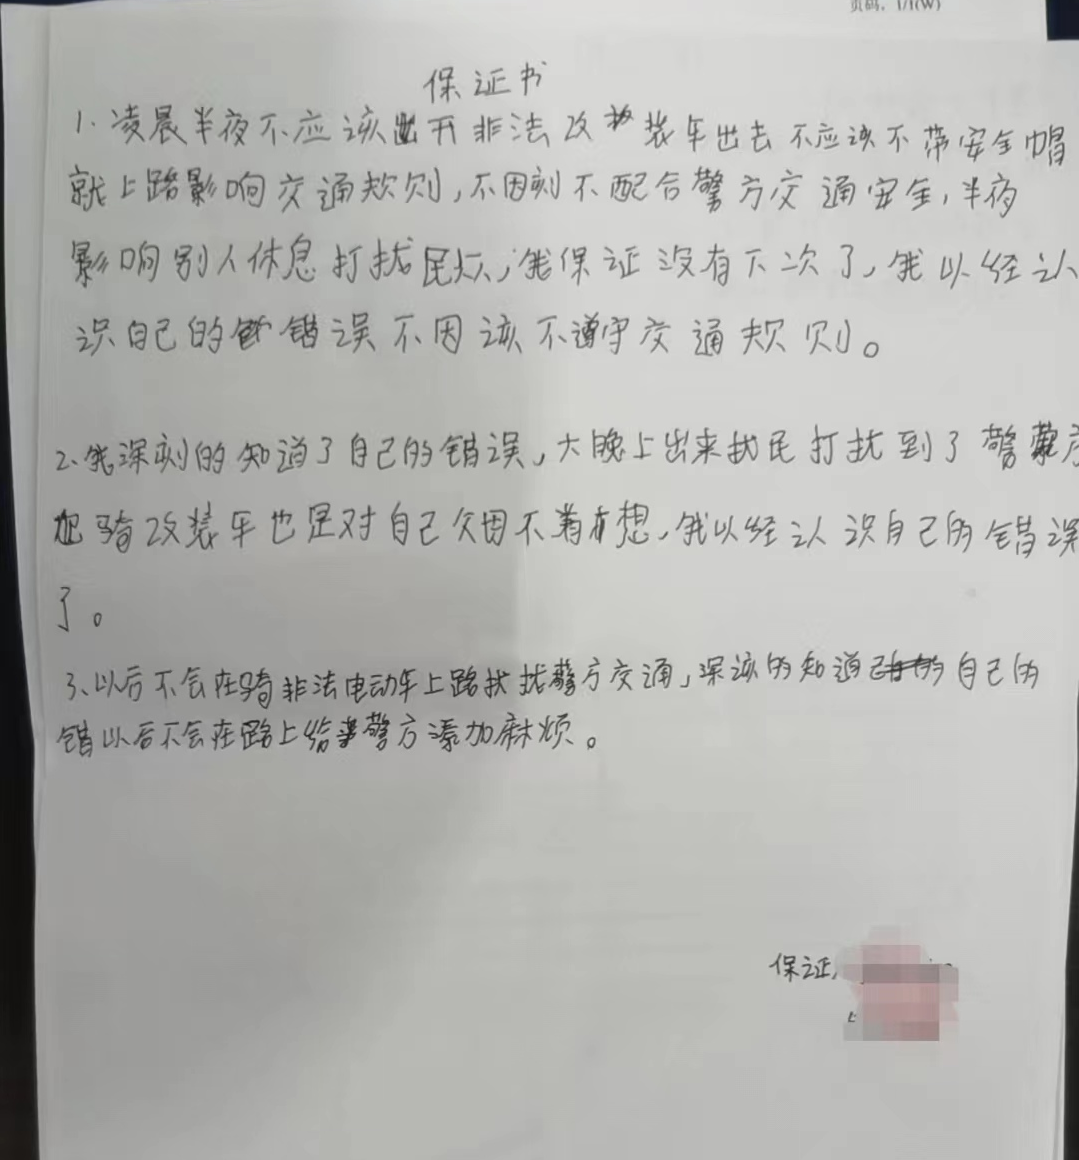 页码:1/1(W)
保证书
1.凌晨半夜不应该开非法改装车出去不应该不带安全帽
就上路影响交通规则,不因刻不配合警方交通安全,半夜
影响别人休息打扰民众,我保证没有下次了,我以经认
识自己的错误不因该不遵守交通规则。
2.我深刻的知道了自己的错误,大晚上出来扰民打扰到了警方
骑改装车也是对自己父母不着想,我以经认识自己的错误
了。
3.以后不会在骑非法电动车上路扰扰警方交通,深该的知道自己的
错以后不会在路上给警方添加麻烦。
保证